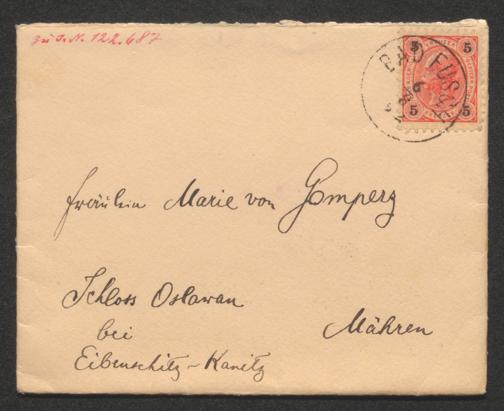 zu I.N. 122.687
5 5
BAD FUSCH
6
8
92
5 5
Fräulein Marie von Gomperz
Schloss Oslawan
bei
Eibenschitz-Kanitz
Mähren